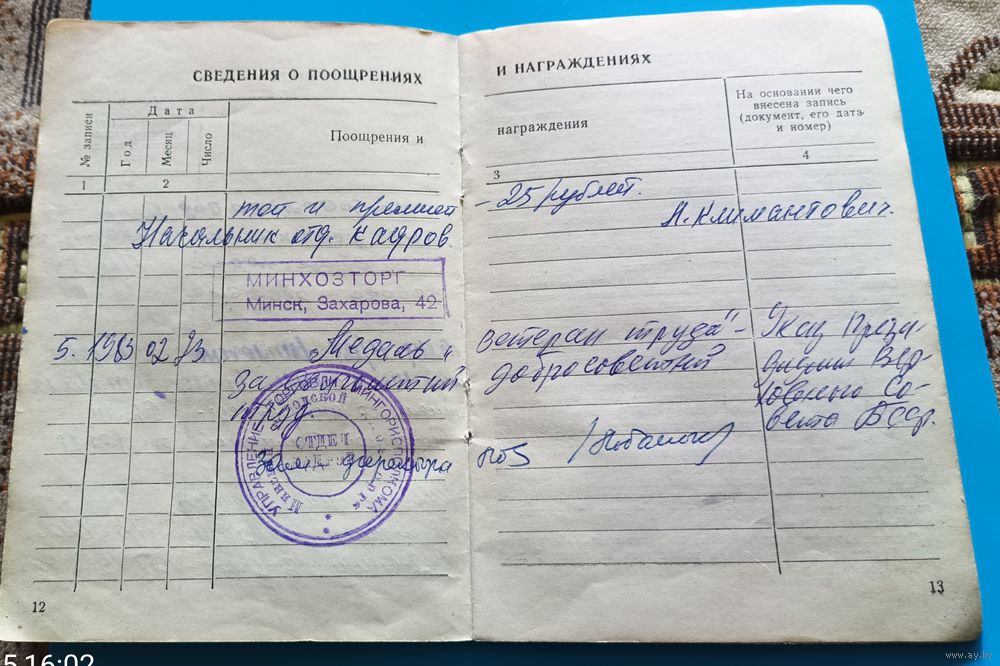 СВЕДЕНИЯ О ПООЩРЕНИЯХ
№ записи
Дата
Год
Месяц
Число
Поощрения и
1
2
той и премией
Начальник отд. кадров.
МИНХОЗТОРГ
Минск, Захарова, 42
5. 1983 02 23 Медаль „
за долголетний
труд
УПРАВЛЕНИЕ ТОРГОВЛИ МИНГОРИСПОЛКОМА
ОТДЕЛ
КАДРОВ
Зам. директора
12
И НАГРАЖДЕНИЯХ
награждения
На основании чего
внесена запись
(документ, его дата
и номер)
3
4
- 25 рублей.
А. Климантович.
Ветеран труда" -
добросовестный
Указ Прези-
диума Вер-
ховного Со-
вета БССР.
13
5 16:02
www.ay.by